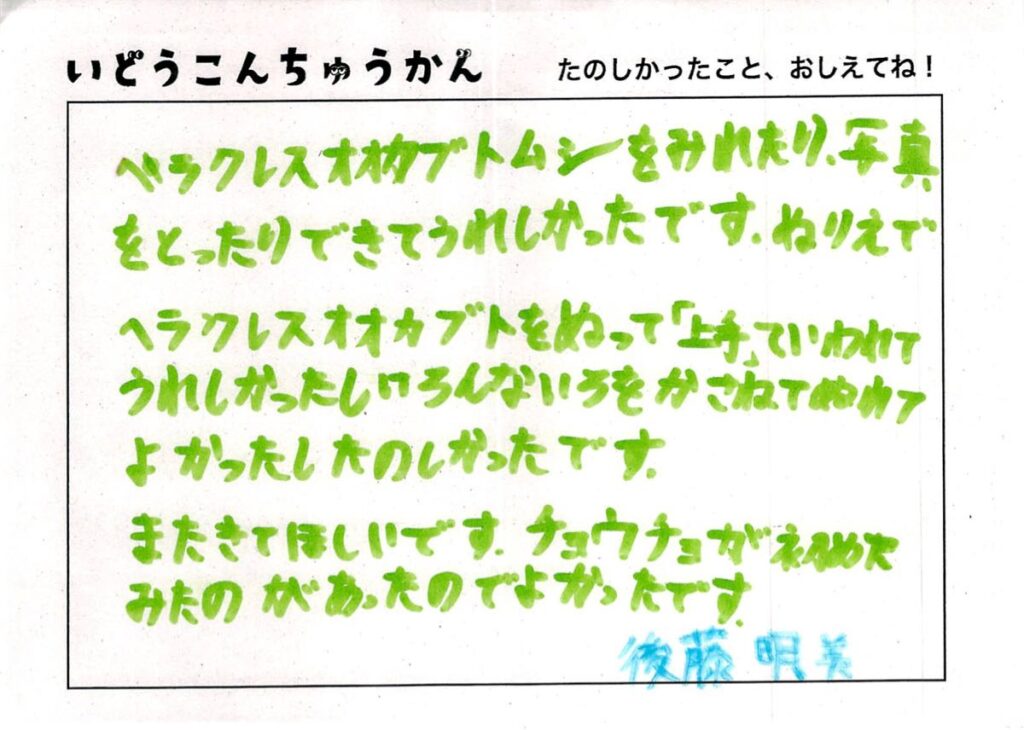 いどうこんちゅうかん
たのしかったこと、おしえてね！
ヘラクレスオオカブトムシをみれたり、写真
をとったりできてうれしかったです。ぬりえで
ヘラクレスオオカブトをぬって「上手」ていわれて
うれしかったしいろんないろをかさねてぬれて
よかったしたのしかったです。
またきてほしいです。チョウチョが初めた
みたのがあったのでよかったです。
後藤 明美